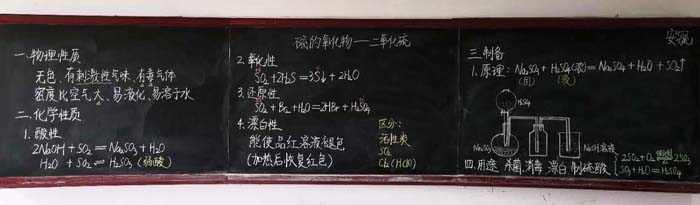 硫的氧化物——二氧化硫
一.物理性质
无色、有刺激性气味、有毒气体
密度比空气大、易液化、易溶于水
二.化学性质
1.酸性
2NaOH+SO₂=Na₂SO₃+H₂O
H₂O+SO₂⇌H₂SO₃(弱酸)
2.氧化性
SO₂+2H₂S=3S↓+2H₂O
3.还原性
SO₂+Br₂+H₂O=2HBr+H₂SO₄
4.漂白性
能使品红溶液褪色
(加热后恢复红色)
区分:
活性炭
SO₂
Cl₂(HClO)
三.制备
1.原理:Na₂SO₃+H₂SO₄(浓)=Na₂SO₄+H₂O+SO₂↑
(固)
(浓)
H₂SO₄
Na₂SO₃
NaOH溶液
四.用途 杀菌、消毒、漂白、制硫酸
2SO₂+O₂⇌2SO₃
SO₃+H₂O=H₂SO₄